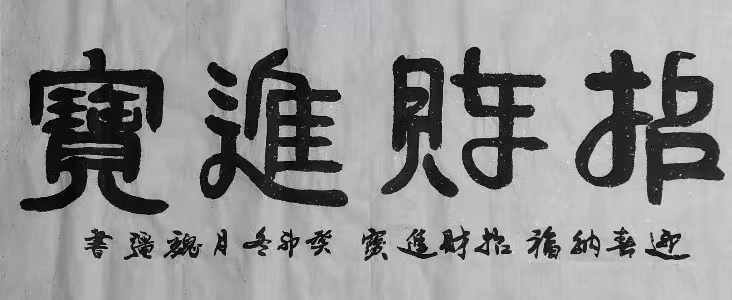 招財進寶
迎春納福 招財進寶 癸卯冬月 魏書